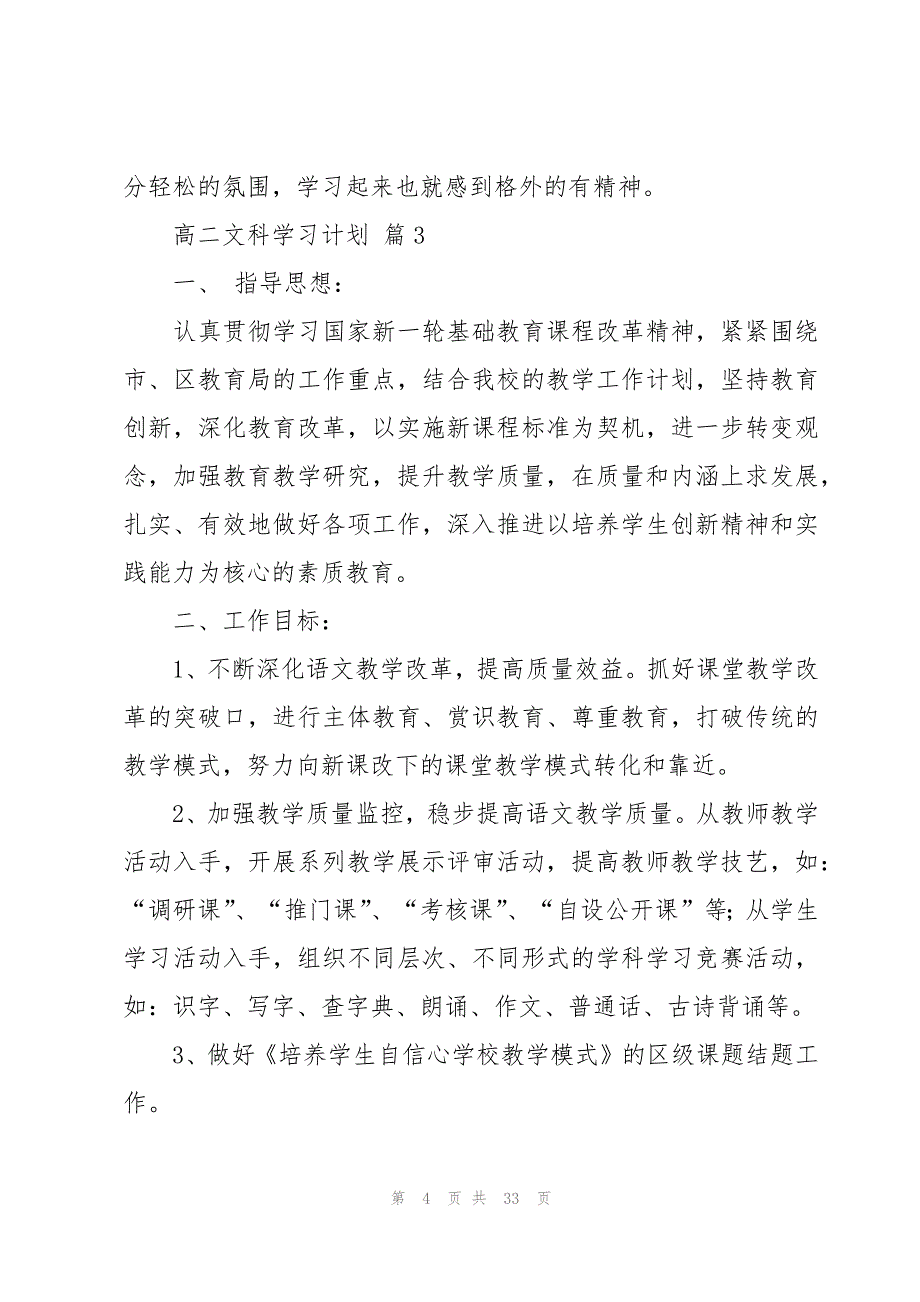 分轻松的氛围，学习起来也就感到格外的有精神。
高二文科学习计划 篇 3
一、 指导思想：
认真贯彻学习国家新一轮基础教育课程改革精神，紧紧围绕
市、区教育局的工作重点，结合我校的教学工作计划，坚持教育
创新，深化教育改革，以实施新课程标准为契机，进一步转变观
念，加强教育教学研究，提升教学质量，在质量和内涵上求发展，
扎实、有效地做好各项工作，深入推进以培养学生创新精神和实
践能力为核心的素质教育。
二、工作目标：
1、不断深化语文教学改革，提高质量效益。抓好课堂教学改
革的突破口，进行主体教育、赏识教育、尊重教育，打破传统的
教学模式，努力向新课改下的课堂教学模式转化和靠近。
2、加强教学质量监控，稳步提高语文教学质量。从教师教学
活动入手，开展系列教学展示评审活动，提高教师教学技艺，如：
“调研课”、“推门课”、“考核课”、“自设公开课”等；从学生
学习活动入手，组织不同层次、不同形式的学科学习竞赛活动，
如：识字、写字、查字典、朗诵、作文、普通话、古诗背诵等。
3、做好《培养学生自信心学校教学模式》的区级课题结题工
作。
第 4 页 共 33 页